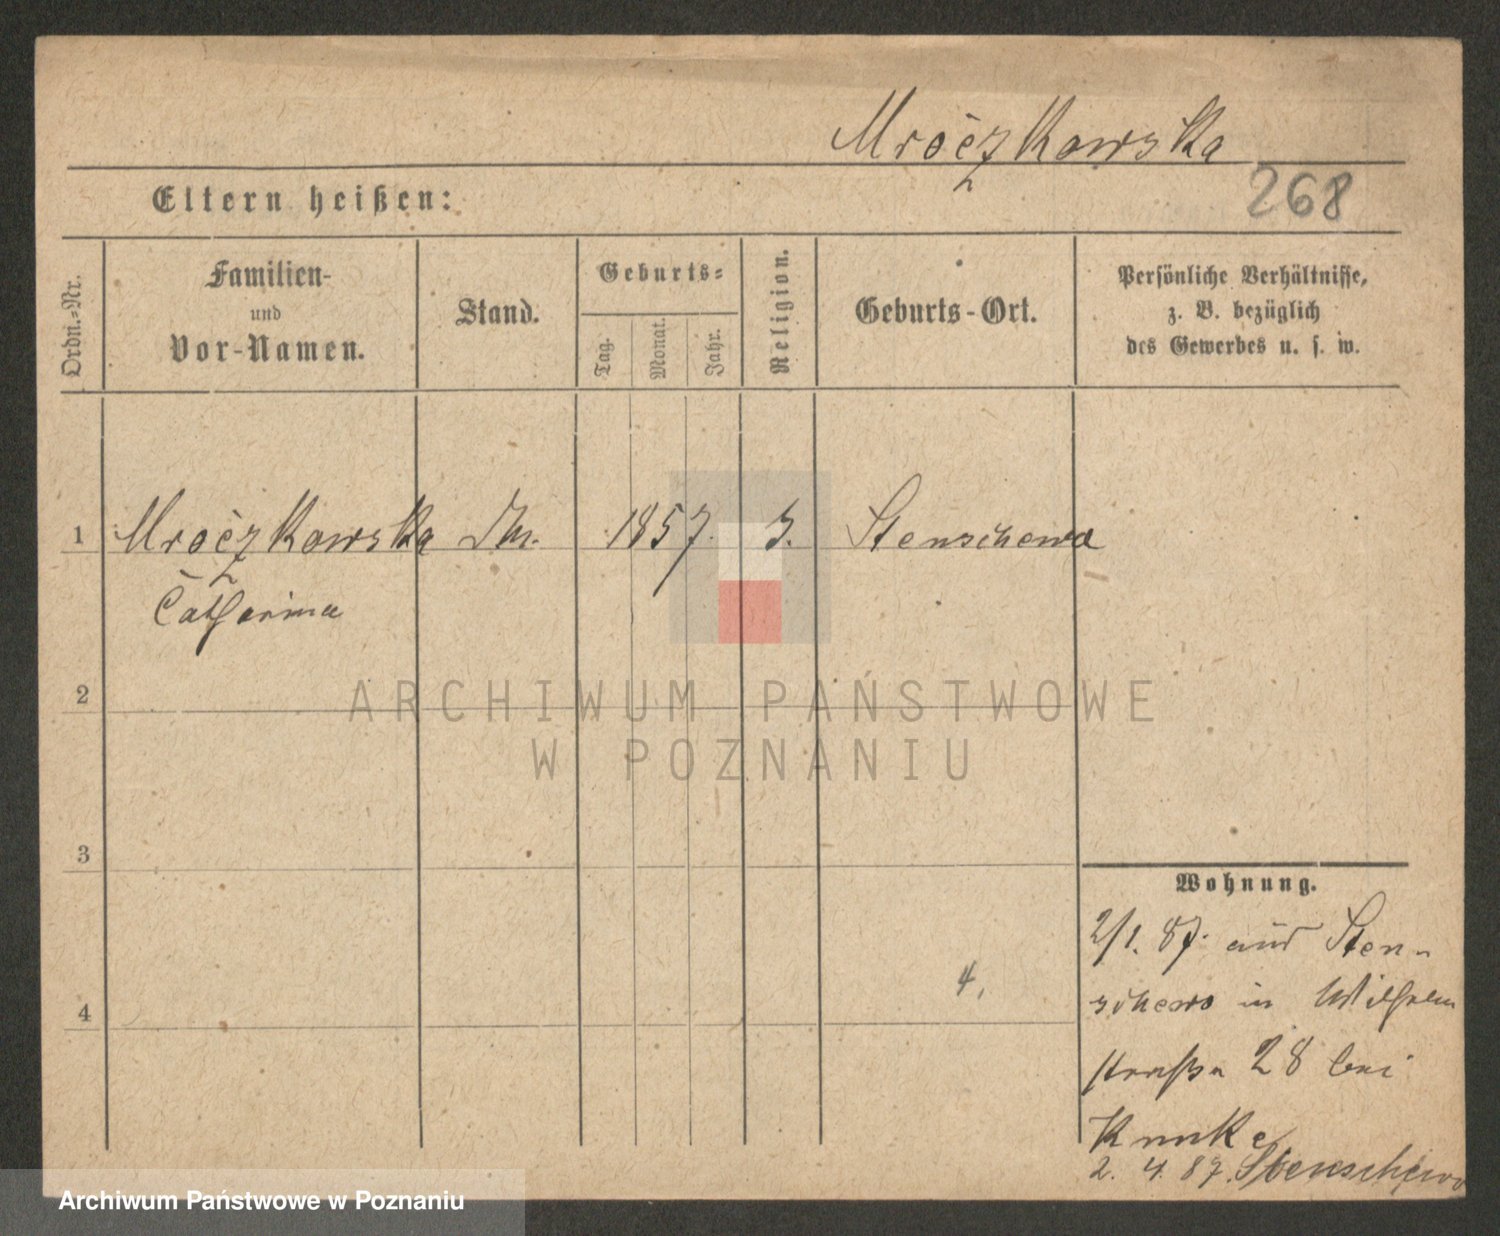 Mroczkowska
268
Eltern heißen:
Ordn.-Nr.
Familien-
und
Vor-Namen.
Stand.
Geburts-
Tag.
Monat.
Jahr.
Religion.
Geburts-Ort.
Persönliche Verhältnisse,
z. B. bezüglich
des Gewerbes u. s. w.
1 Mroczkowska 1857. Stenschewo
Catharina
2
ARCHIWUM PAŃSTWOWE
W POZNANIU
3
Wohnung.
2/1. 87. aus Sten-
4.
schewo in Wilhelm
4
straße 28 bei
2. 4. 87. Stenschewo
Archiwum Państwowe w Poznaniu